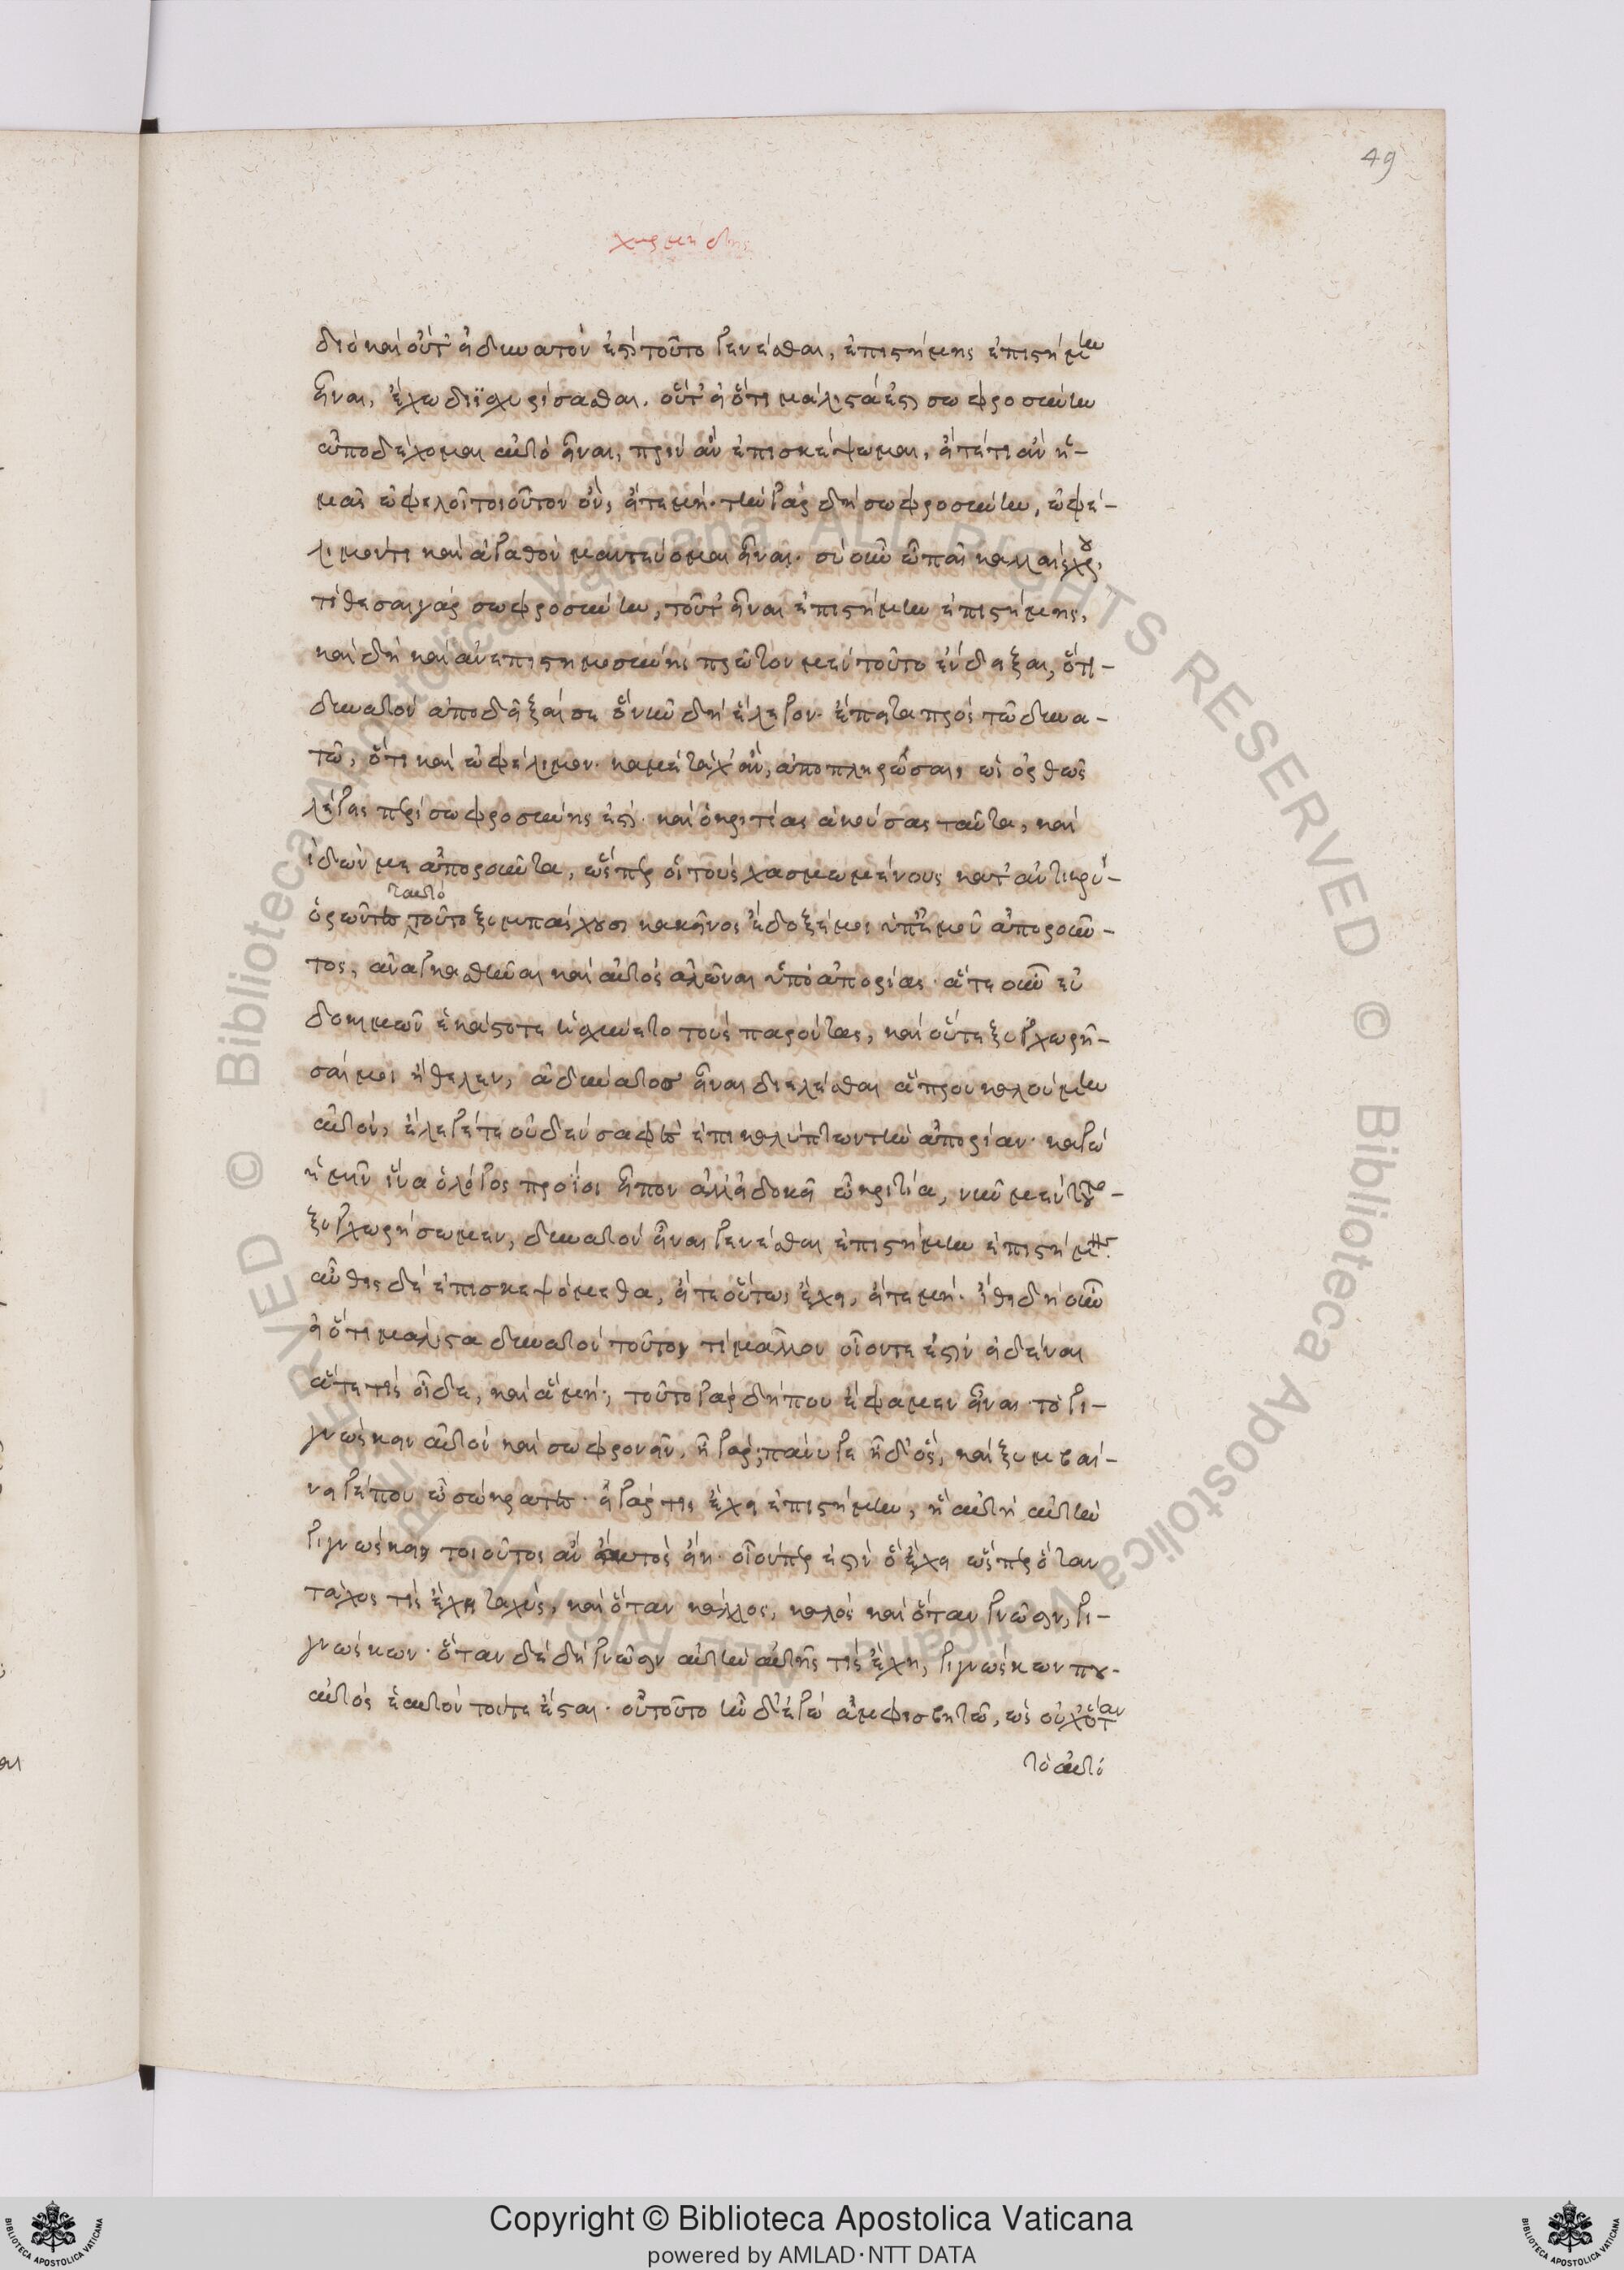 49
χαρμίδης
διὸ καὶ οὔτ' εἰ δυνατόν ἐστι τοῦτο γενέσθαι, ἐπιστήμης ἐπιστήμην
εἶναι, ἔχω διϊσχυρίσασθαι. οὔτ' εἰ ὅτι μάλιστά ἐστι σωφροσύνην
ἀποδέχομαι αὐτὸ εἶναι, πρὶν ἂν ἐπισκέψωμαι, εἴτέ τι ἂν ἡ-
μᾶς ὠφελοῖ τοιοῦτον ὄν, εἴτε μή. τὴν γὰρ δὴ σωφροσύνην, ὠφέ-
λιμόν τι καὶ ἀγαθὸν μαντεύομαι εἶναι. σὺ οὖν ὦ παῖ καλλαίσχρου,
τίθεσαι γὰρ σωφροσύνην, τοῦτ' εἶναι ἐπιστήμην ἐπιστήμης,
καὶ δὴ καὶ ἀνεπιστημοσύνης πρῶτον μὲν τοῦτο ἔνδειξαι, ὅτι-
δυνατὸν ἀποδεῖξαί σε ὃ νῦν δὴ ἔλεγον. ἔπειτα πρὸς τῷ δυνα-
τῷ, ὅτι καὶ ὠφέλιμον. καμὲ τάχ' ἂν, ἀποπληρώσαις, ὡς ὀρθῶς
λέγεις περὶ σωφροσύνης ἐστι. καὶ ὁ κριτίας ἀκούσας ταῦτα, καὶ
ἰδών με ἀποροῦντα, ὥσπερ οἱ τοὺς χασμωμένους καταντικρύ-
ὁρῶντες ταυτὸ τοῦτο ξυμπάσχουσι κακεῖνος ἔδοξέ μοι ὑπ' ἐμοῦ ἀποροῦν-
τος, ἀναγκασθῆναι καὶ αὐτὸς ἁλῶναι ὑπὸ ἀπορίας. ἅτε οὖν εὐ
δοκιμῶν ἑκάστοτε ᾐσχύνετο τοὺς παρόντας, καὶ οὔτε ξυγχωρῆ-
σαί μοι ἤθελεν, ἀδύνατος εἶναι διελέσθαι ἃ προυκαλούμην
αὐτόν, ἔλεγέ τε οὐδὲν σαφὲς ἐπικαλύπτων τὴν ἀπορίαν. καγὼ
ἡμῖν ἵνα ὁ λόγος προΐοι εἶπον ἀλλ' εἰ δοκεῖ ὦ κριτία, νῦν μὲν τοῦτο-
ξυγχωρήσωμεν, δυνατὸν εἶναι γενέσθαι ἐπιστήμην ἐπιστήμης.
αὖθις δὲ ἐπισκεψόμεθα, εἴτε οὕτως ἔχει, εἴτε μή. ἴθι δὴ οὖν
εἰ ὅτι μάλιστα δυνατὸν τοῦτον τί μᾶλλον οἷόντε ἐστὶν εἰδέναι
ἅτε τὶς οἶδε, καὶ ἃ μή; τοῦτο γὰρ δήπου ἔφαμεν εἶναι τὸ γι-
γνώσκειν αὐτὸν καὶ σωφρονεῖν, ἦ γάρ; πάνυ γε ἦ δ' ὅς, καὶ ξυμβαί-
νει γέ που ὦ σώκρατες. εἰ γάρ τις ἔχει ἐπιστήμην, ἣ αὐτὴ αὑτὴν
γιγνώσκει, τοιοῦτος ἂν αὐτὸς εἴη. οἷόνπερ ἐστὶν ὃ ἔχει ὥσπερ ὅταν
τάχος τὶς ἔχῃ ταχύς, καὶ ὅταν κάλλος, καλὸς καὶ ὅταν γνῶσιν, γι-
γνώσκων. ὅταν δὲ δὴ γνῶσιν αὐτὴν αὑτῆς τὶς ἔχῃ, γιγνώσκων που-
αὐτὸς ἑαυτὸν τότε ἔσται. οὐ τοῦτο ἦν δ' ἐγὼ ἀμφισβητῶ, ὡς οὐχ ὅταν
τὸ αὐτό